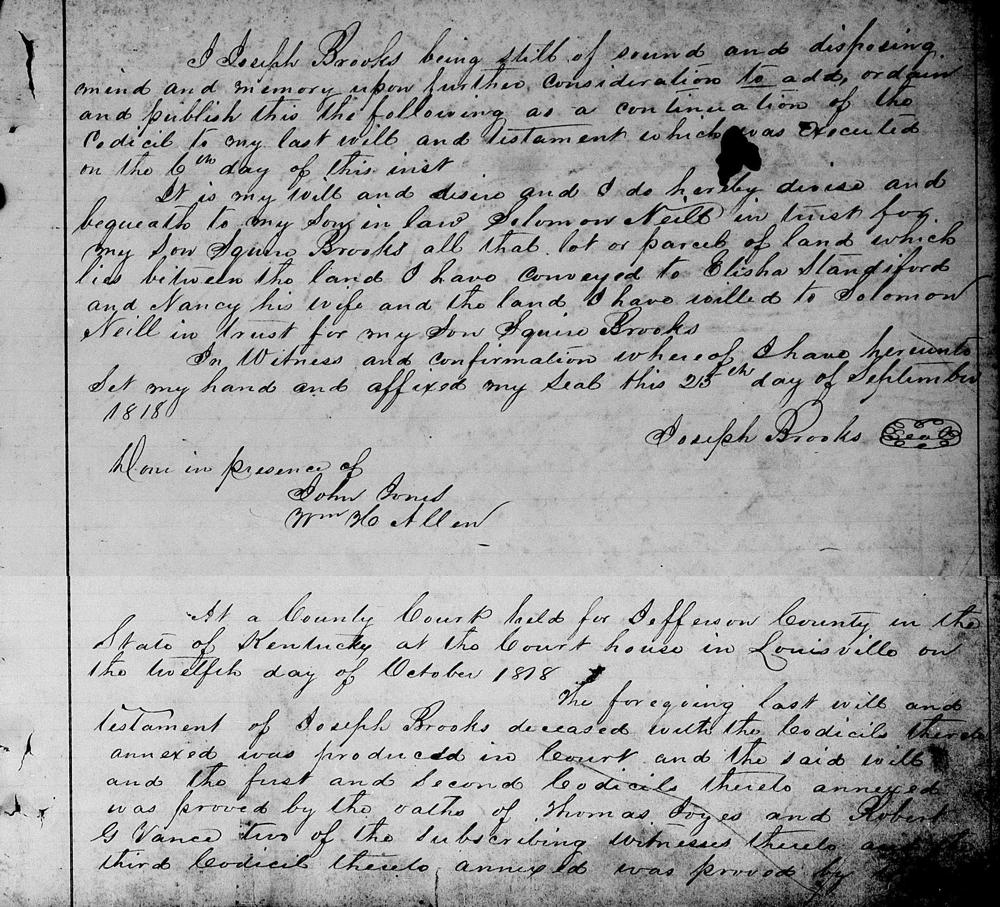 I Joseph Brooks being still of sound and disposing
mind and memory upon further consideration to add, ordain
and publish this the following as a continuation of the
Codicil to my last will and testament which was executed
on the 6th day of this inst
It is my will and desire and I do hereby devise and
bequeath to my Son in law Solomon Neill in trust for
my Son Squire Brooks all that lot or parcel of land which
lies between the land I have conveyed to Elisha Standiford
and Nancy his wife and the land I have willed to Solomon
Neill in trust for my Son Squire Brooks
In Witness and confirmation whereof I have hereunto
Set my hand and affixed my Seal this 25th day of September
1818
Joseph Brooks Seal
Done in presence of
John Jones
Wm H Allen
At a County Court held for Jefferson County in the
State of Kentucky at the Court house in Louisville on
the twelfth day of October 1818
The foregoing last will and
testament of Joseph Brooks deceased with the Codicils thereto
annexed was produced in Court and the said will
and the first and Second Codicils thereto annexed
was proved by the oaths of Thomas Joyes and Robert
G Vance two of the Subscribing Witnesses thereto and the
third Codicil thereto annexed was proved by